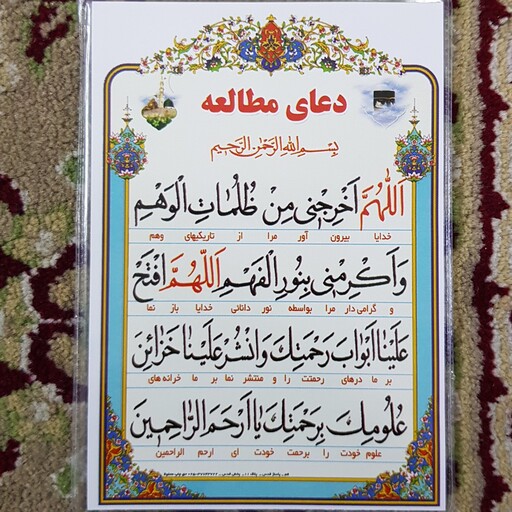 دعای مطالعه
بِسْمِ اللهِ الرَّحْمٰنِ الرَّحیمِ
اَللّٰهُمَّ اَخْرِجْنی مِنْ ظُلُماتِ الْوَهْمِ
خدایا بیرون آور مرا از تاریکیهای وهم
وَ اَکْرِمْنی بِنُورِ الْفَهْمِ اَللّٰهُمَّ افْتَحْ
و گرامی دار مرا بواسطه نور دانائی خدایا باز نما
عَلَیْنا اَبْوابَ رَحْمَتِكَ وَ انْشُرْ عَلَیْنا خَزائِنَ
بر ما درهای رحمتت را و منتشر نما بر ما خزانه های
عُلُومِكَ بِرَحْمَتِكَ یا اَرْحَمَ الرّاحِمینَ
علوم خودت را برحمت خودت ای ارحم الراحمین